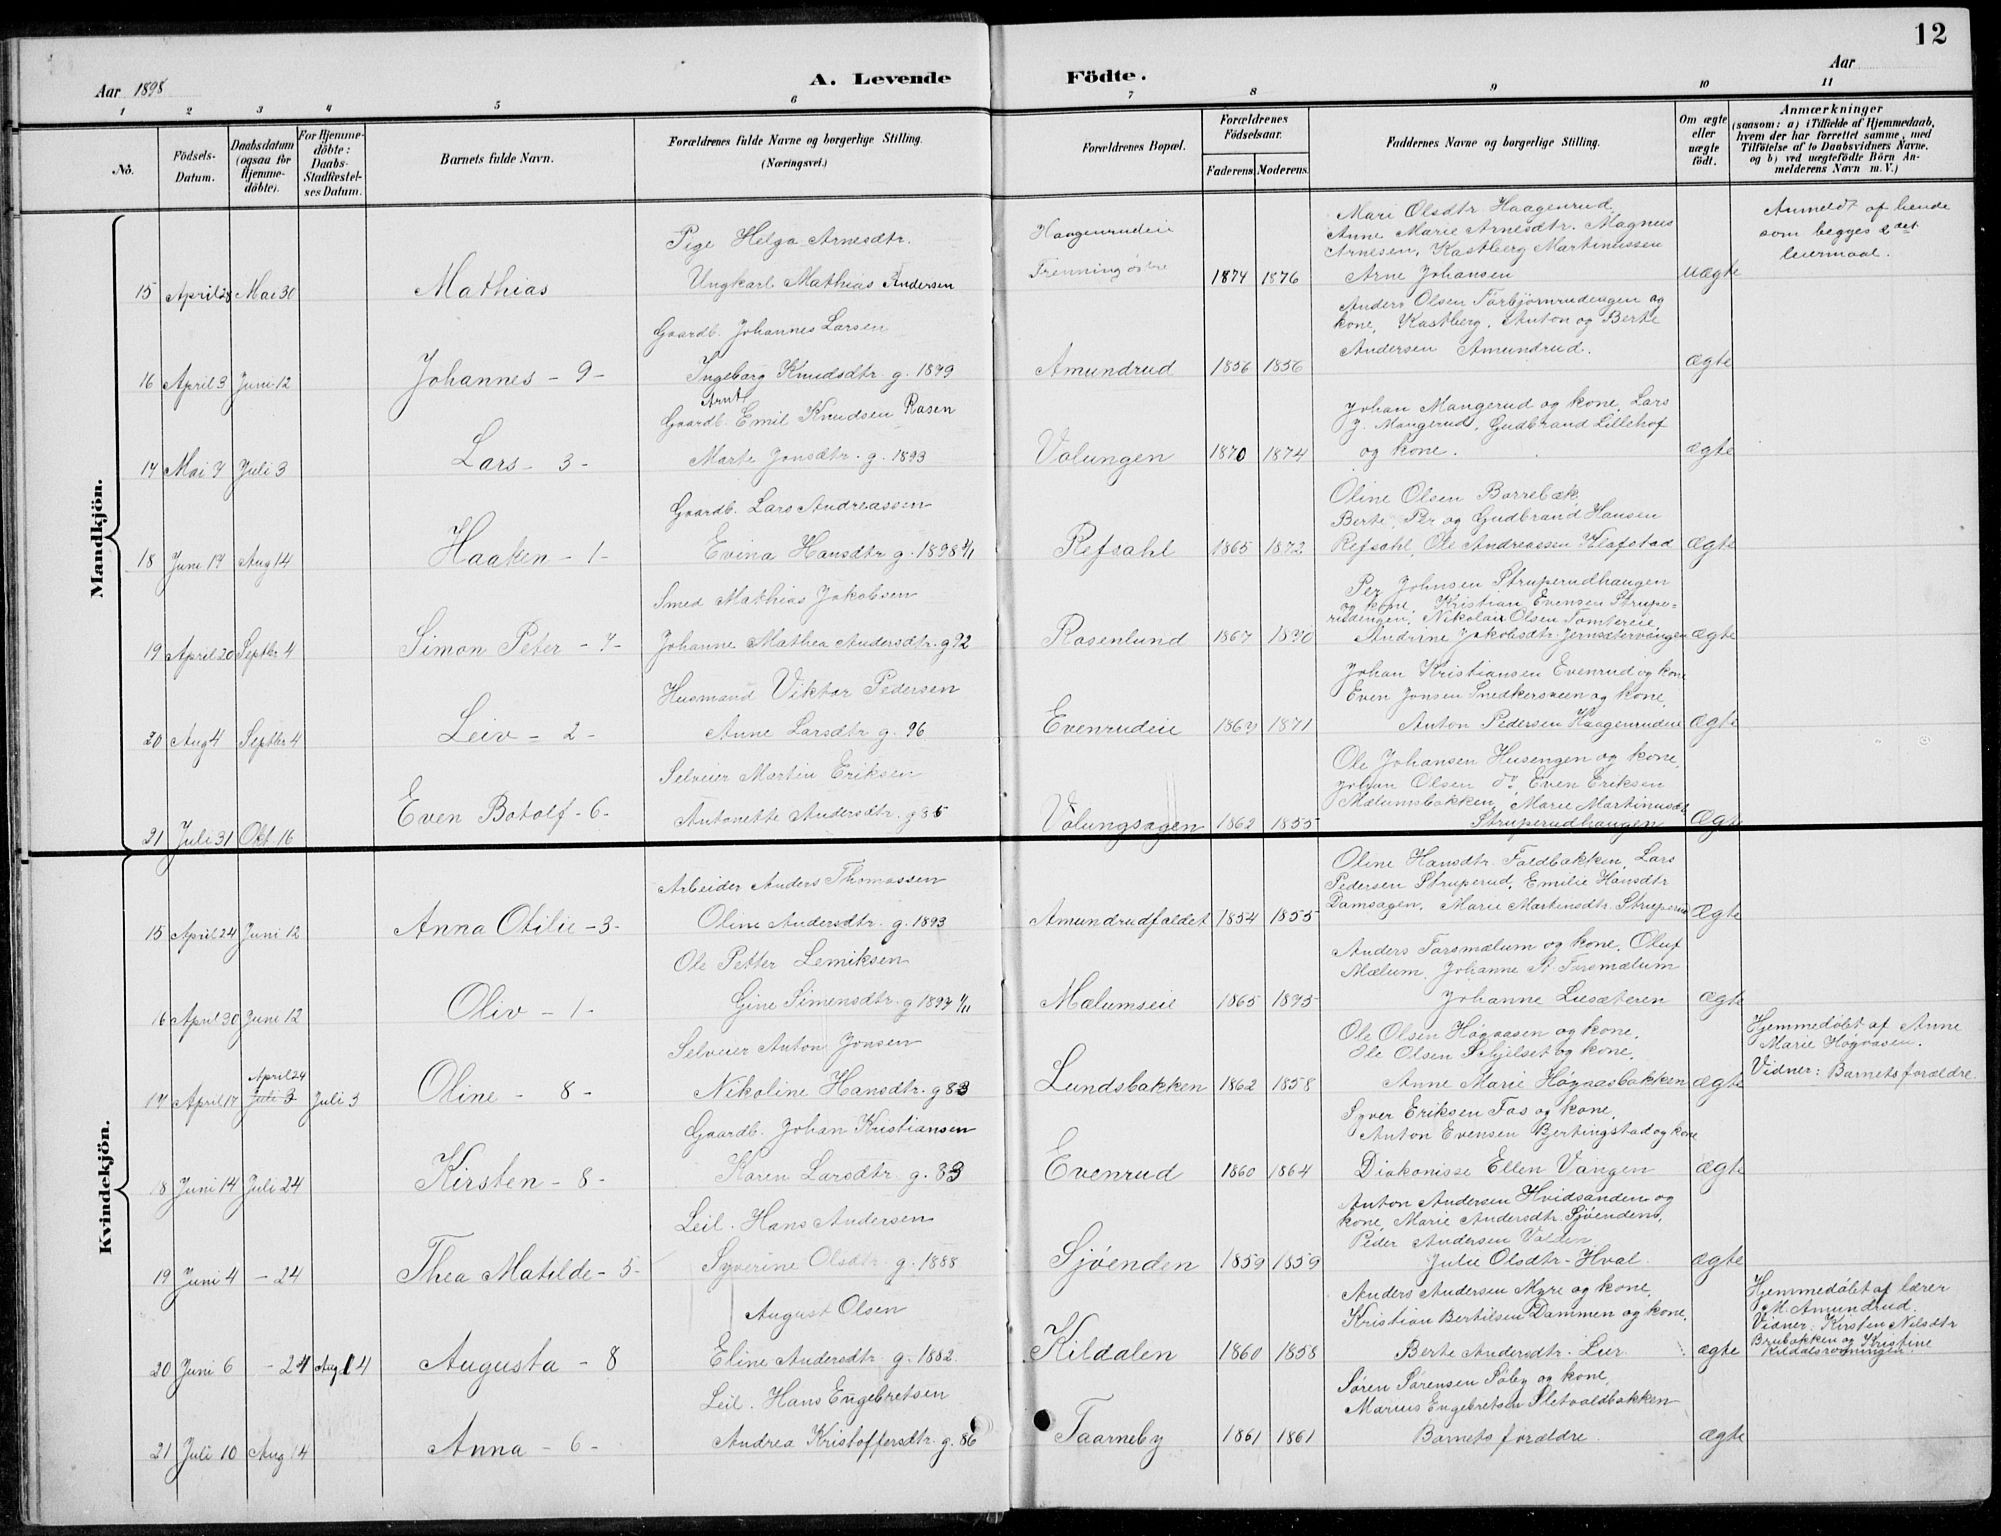 12
Aar 1898
A. Levende Födte.
Aar
1 2 3 4 5 6 7 8 9 10 11
No.
Födsels-Datum.
Daabsdatum (ogsaa for Hjemme-döbte).
For Hjemme-döbte: Daabs-Stadfæstel-ses Datum.
Barnets fulde Navn.
Forældrenes fulde Navne og borgerlige Stilling. (Næringsvei.)
Forældrenes Bopæl.
Forældrenes Födselsaar.
Faderens. Moderens.
Faddernes Navne og borgerlige Stilling.
Om ægte eller uægte födt.
Anmærkninger
(saasom: a) i Tilfælde af Hjemmedaab, hvem der har forrettet samme, med Tilföielse af to Daabsvidners Navne, og b) ved uægtefödte Börn An-melderens Navn m. V.)
Mandkjön.
Pige Helga Arnesdtr.
Ungkarl Mathias Andersen
15 April 28 Mai 30 Mathias
Haagenrudeie
Trenning østre
1874 1876
Mari Olsdtr Haagenrud,
Anne Marie Arnesdtr. Magnus
Arnesen, Kastberg Martinussen
Arne Johansen
uægte
Anmeldt af hende
som begges 2det
leiermaal.
Gaardb. Johannes Larsen
16 April 3 Juni 12 Johannes - 9 -
Ingeborg Knudsdtr. g. 1879
Amundrud 1856 1856
Anders Olsen Torbjørnrudengen og
kone, Kastberg, Anton og Berte
Andersen Amundrud.
ægte
Arnt
Gaardb. Emil Knudsen Rasen
17 Mai 7 Juli 3 Lars - 3 -
Marte Jonsdtr. g. 1893
Volungen 1870 1874
Johan Mangerud og kone, Lars
J. Mangerud, Gudbrand Lillehof
og kone.
ægte
Gaardb. Lars Andreassen
18 Juni 17 Aug 14 Haaken - 1 -
Evina Hansdtr g. 1898
Refsahl 1865 1872
Oline Olsen Borrebæk
Berte, Per og Gudbrand Hansen
Refsahl, Ole Andreassen Klafstad
ægte
Smed Mathias Jakobsen
19 April 20 Septbr 4 Simon Peter - 7 -
Johanne Mathea Andersdtr. g 92
Rosenlund 1867 1870
Per Johnsen Struperudhaugen
og kone, Kristian Evensen Strupe=
rudengen, Nikolai Olsen Tomtereie,
Andrine Jakobsdtr. Jernsætervangen
ægte
Husmand Viktor Pedersen
20 Aug 4 Septbr 4 Leiv - 2 -
Anne Larsdtr g. 96
Evenrudeie 1867 1871
Johan Kristiansen Evenrud og kone
Even Jonsen Snedkersveen og kone,
Anton Pedersen Haagenrudeie
ægte
Selveier Martin Eriksen
21 Juli 31 Okt 16 Even Botolf - 6 -
Antonette Andersdtr. g 85
Volungsagen 1862 1855
Ole Johansen Husengen og kone,
Johan Olsen do. Even Eriksen
Mælumsbakken, Marie Martinusdt
Struperudhaugen
Ægte
Kvindekjön.
Arbeider Anders Thomassen
15 April 24 Juni 12 Anna Otilie - 3 -
Oline Andersdtr. g. 1893
Amundrudfaldet 1854 1855
Oline Hansdtr. Faldbakken, Lars
Pedersen Struperud, Emilie Hansdtr
Damsagen, Marie Martensdtr. Struperud
Ægte
Ole Petter Lemiksen
16 April 30 Juni 12 Oliv - 1 -
Gine Simensdtr. g 1897
Mælumseie 1865 1875
Anders Torsmælum og kone, Oluf
Mælum, Johanne A. Torsmælum
Johanne Liesæteren
ægte
Selveier Anton Jonsen
April 24
17 April 17 Juli 3 Juli 3 Oline - 8 -
Nikoline Hansdtr. g 83
Lundsbakken 1862 1858
Ole Olsen Høgaasen og kone,
Ole Olsen Schjelset og kone,
Anne Marie Høgaasbakken
ægte
Hjemmedøbt af Anne
Marie Høgaasen.
Vidner: Barnets forældre
Gaardb. Johan Kristiansen
18 Juni 14 Juli 24 Kirsten - 8 -
Karen Larsdtr. g. 83
Evenrud 1860 1864
Syver Eriksen Fos og kone,
Anton Evensen Bjertingstad og kone
Diakonisse Ellen Vangen
ægte
Leil. Hans Andersen
19 Juni 4 - 24 Thea Matilde - 5 -
Syverine Olsdtr g. 1888
Sjøenden 1859 1859
Anton Andersen Hvidsanden og
kone, Marie Andersdtr. Sjøenden,
Peder Andersen Volden
Julie Olsdtr. Hval.
ægte
August Olsen
20 Juni 6 - 24 Aug 14 Augusta - 8
Eline Andersdtr. g. 1882.
Kildalen 1860 1858
Anders Andersen Myre og kone,
Kristian Bertilsen Dammen og kone,
Berte Andersdtr. Lier
ægte
Hjemmedøbt af lærer
M. Amundrud.
Vidner: Kirsten Nilsdtr
Brubakken og Kristine
Kildalsrøningen
Leil. Hans Engebretsen
21 Juli 10 Aug 14 Anna - 6 -
Andrea Kristoffersdtr. g. 86
Taarneby 1861 1861
Søren Sørensen Søby og kone,
Marius Engebretsen Sletvoldbakken
Barnets forældre.
ægte